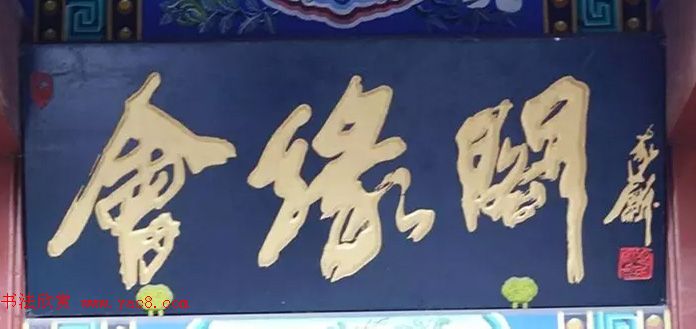 會緣閣
书法欣赏 www.yac8.com